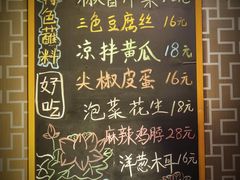 特色蘸料
好吃
三色豆腐丝 16元
凉拌黄瓜 18元
尖椒皮蛋 16元
泡菜花生 18元
麻辣鸡脖 28元
洋葱木耳 16元